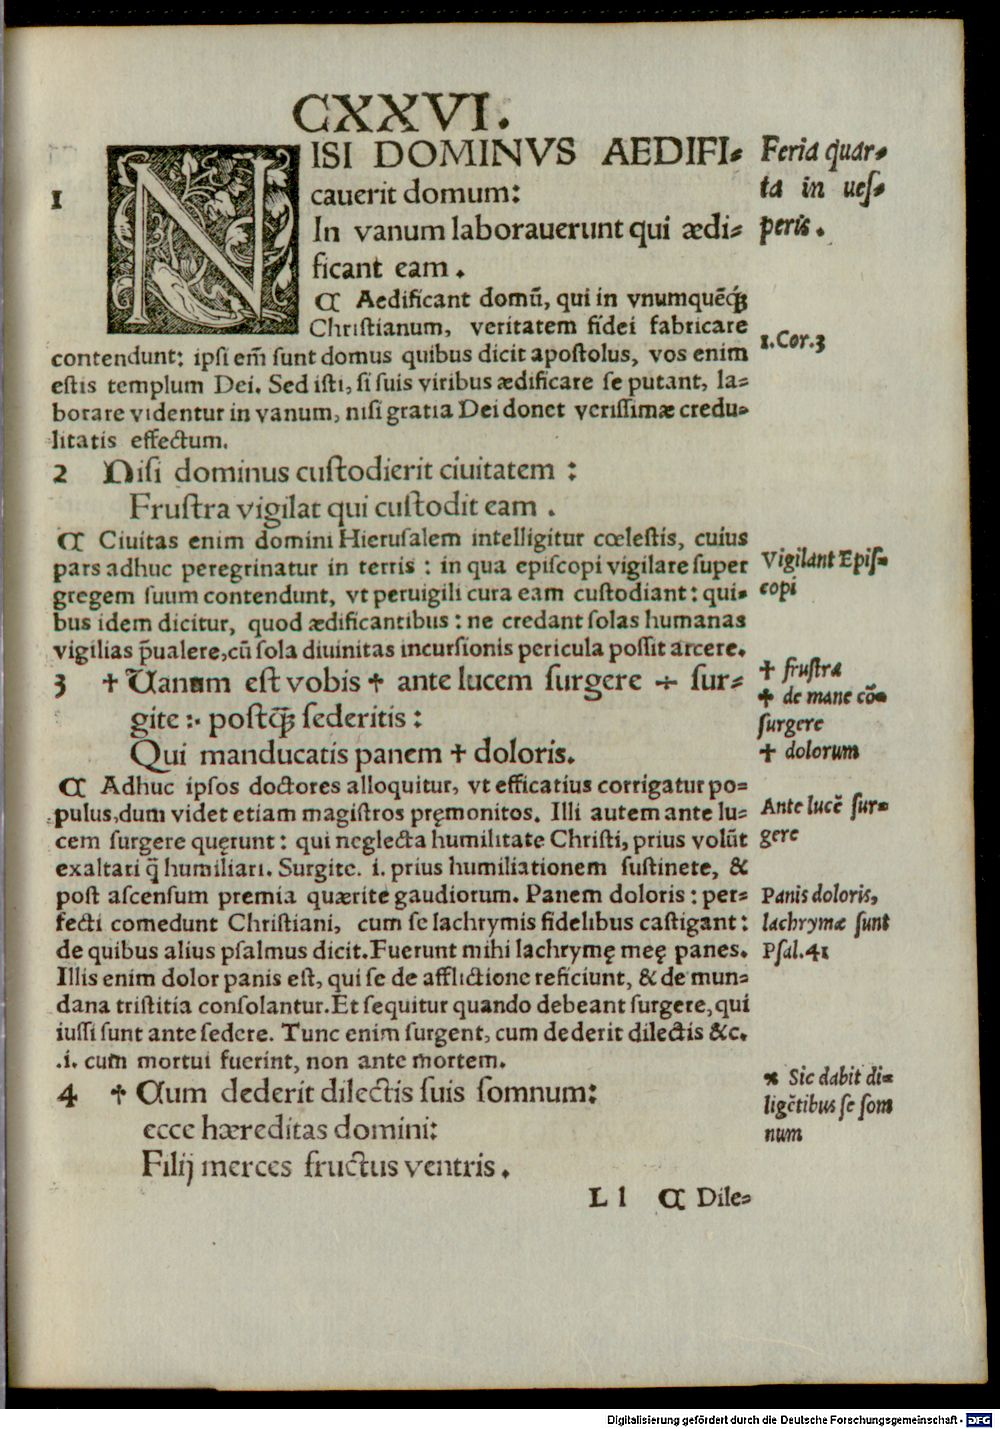 CXXVI.
NISI DOMINVS AEDIFI-
Feria quar-
1
cauerit domum:
ta in ues-
In vanum laborauerunt qui ædi-
peris.
ficant eam.
¶ Aedificant domũ, qui in vnumquẽqꝫ
Christianum, veritatem fidei fabricare
1.Cor.3
contendunt: ipsi em̃ sunt domus quibus dicit apostolus, vos enim
estis templum Dei. Sed isti, si suis viribus ædificare se putant, la-
borare videntur in vanum, nisi gratia Dei donet verissimæ credu-
litatis effectum.
2 Nisi dominus custodierit ciuitatem :
Frustra vigilat qui custodit eam .
¶ Ciuitas enim domini Hierusalem intelligitur cœlestis, cuius
Vigilant Epis-
pars adhuc peregrinatur in terris : in qua episcopi vigilare super
copi
gregem suum contendunt, vt peruigili cura eam custodiant: qui-
bus idem dicitur, quod ædificantibus : ne credant solas humanas
vigilias p̃ualere,cũ sola diuinitas incursionis pericula possit arcere.
✝ frustra
3 ✝ Uanum est vobis ✝ ante lucem surgere ÷ sur-
✝ de mane cõ-
gite :· postqꝫ sederitis :
surgere
Qui manducatis panem ✝ doloris.
✝ dolorum
¶ Adhuc ipsos doctores alloquitur, vt efficatius corrigatur po-
pulus,dum videt etiam magistros pręmonitos. Illi autem ante lu-
Ante lucẽ sur-
cem surgere quęrunt : qui neglecta humilitate Christi, prius volũt
gere
exaltari q̃ humiliari. Surgite. i. prius humiliationem sustinete, &
post ascensum premia quærite gaudiorum. Panem doloris : per-
Panis doloris,
fecti comedunt Christiani, cum se lachrymis fidelibus castigant:
lachrymæ sunt
de quibus alius psalmus dicit.Fuerunt mihi lachrymę meę panes.
Psal.41
Illis enim dolor panis est, qui se de afflictione reficiunt, & de mun-
dana tristitia consolantur.Et sequitur quando debeant surgere,qui
iussi sunt ante sedere. Tunc enim surgent, cum dederit dilectis &c.
.i. cum mortui fuerint, non ante mortem.
✝ Sic dabit di-
4 ✝ Cum dederit dilectis suis somnum:
ligẽtibus se som
ecce hæreditas domini:
num
Filij merces fructus ventris .
L l ¶ Dile-
Digitalisierung gefördert durch die Deutsche Forschungsgemeinschaft - DFG